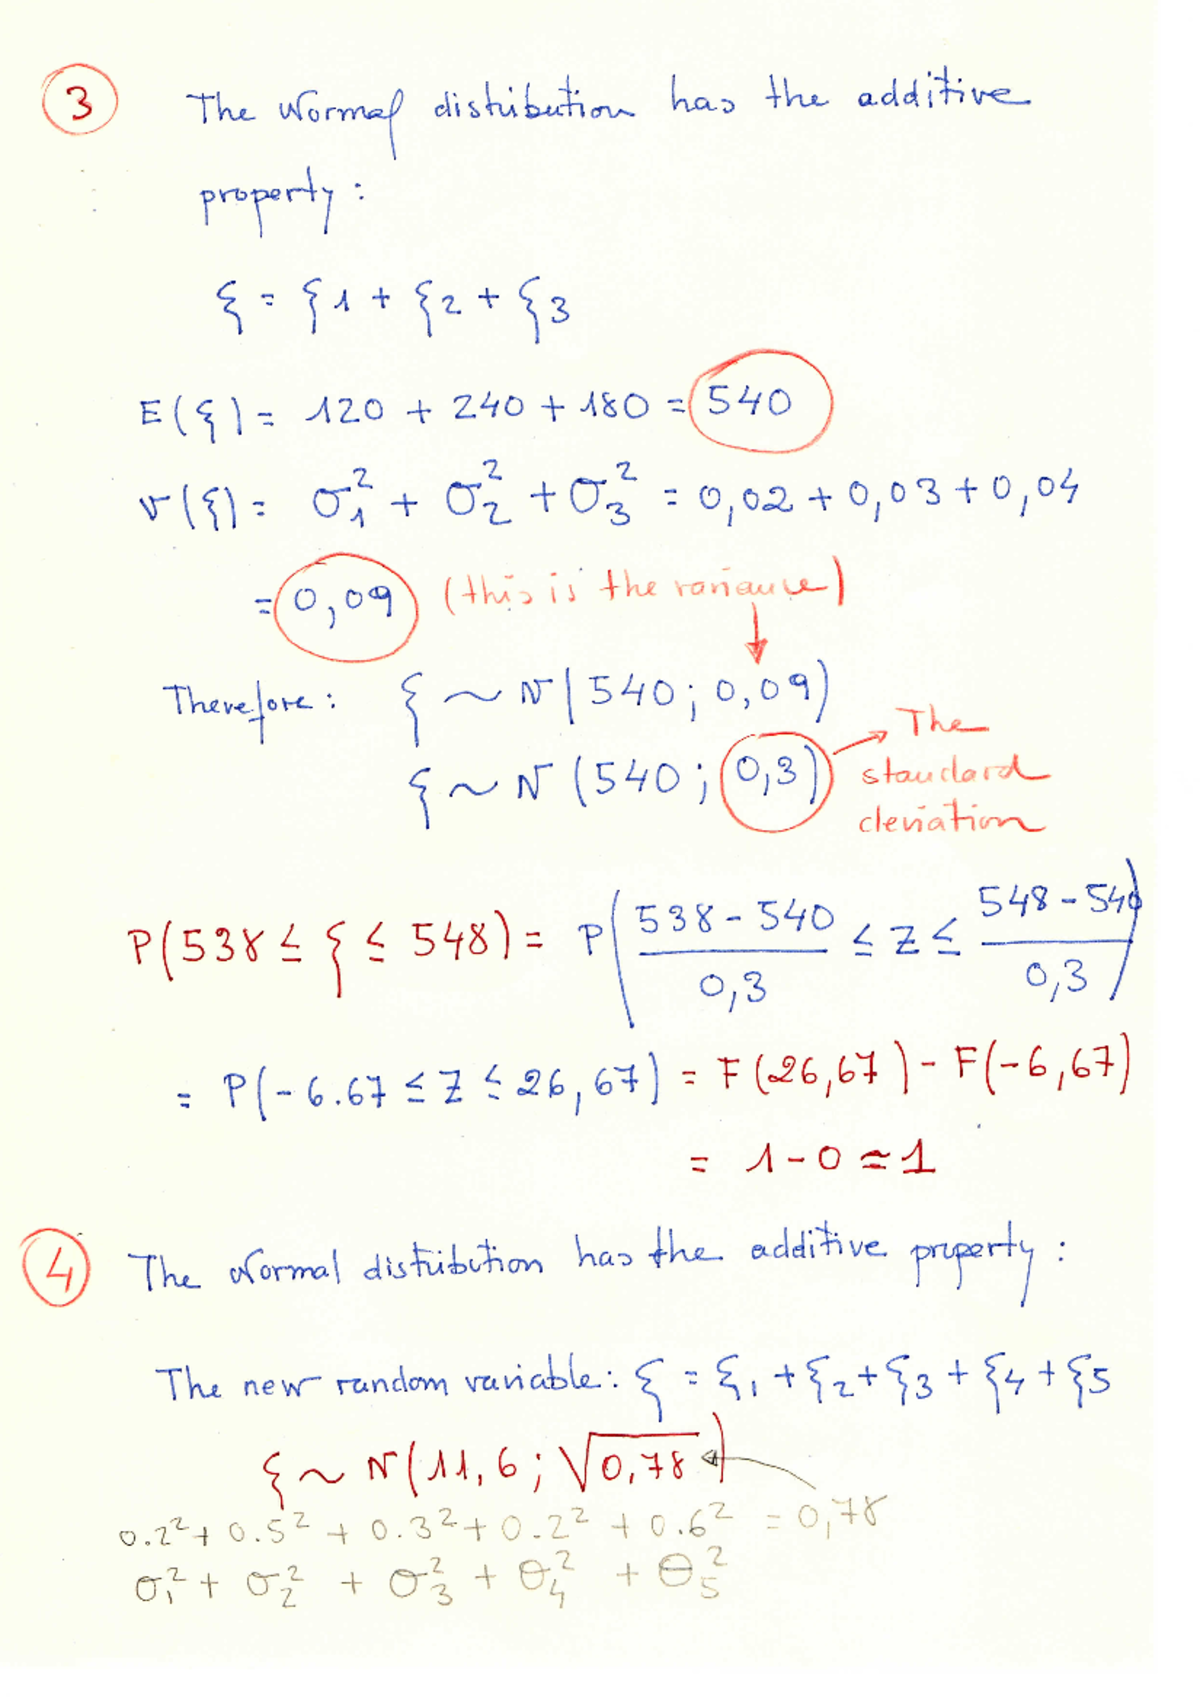 3 The Normal distribution has the additive
property:
ξ = ξ1 + ξ2 + ξ3
E(ξ) = 120 + 240 + 180 = 540
V(ξ) = σ₁² + σ₂² + σ₃² = 0,02 + 0,03 + 0,04
= 0,09 (this is the variance)
Therefore: ξ ~ N(540; 0,09)
ξ ~ N(540; 0,3) → The
standard
deviation
P(538 ≤ ξ ≤ 548) = P((538 - 540)/0,3 ≤ Z ≤ (548 - 540)/0,3)
= P(-6.67 ≤ Z ≤ 26,67) = F(26,67) - F(-6,67)
= 1 - 0 ≃ 1
4 The Normal distribution has the additive property:
The new random variable: ξ = ξ₁ + ξ₂ + ξ₃ + ξ₄ + ξ5
ξ ~ N(11,6; √0,78)
0.2² + 0.5² + 0.3² + 0.2² + 0.6² = 0,78
σ₁² + σ₂² + σ₃² + θ₄² + θ₅²